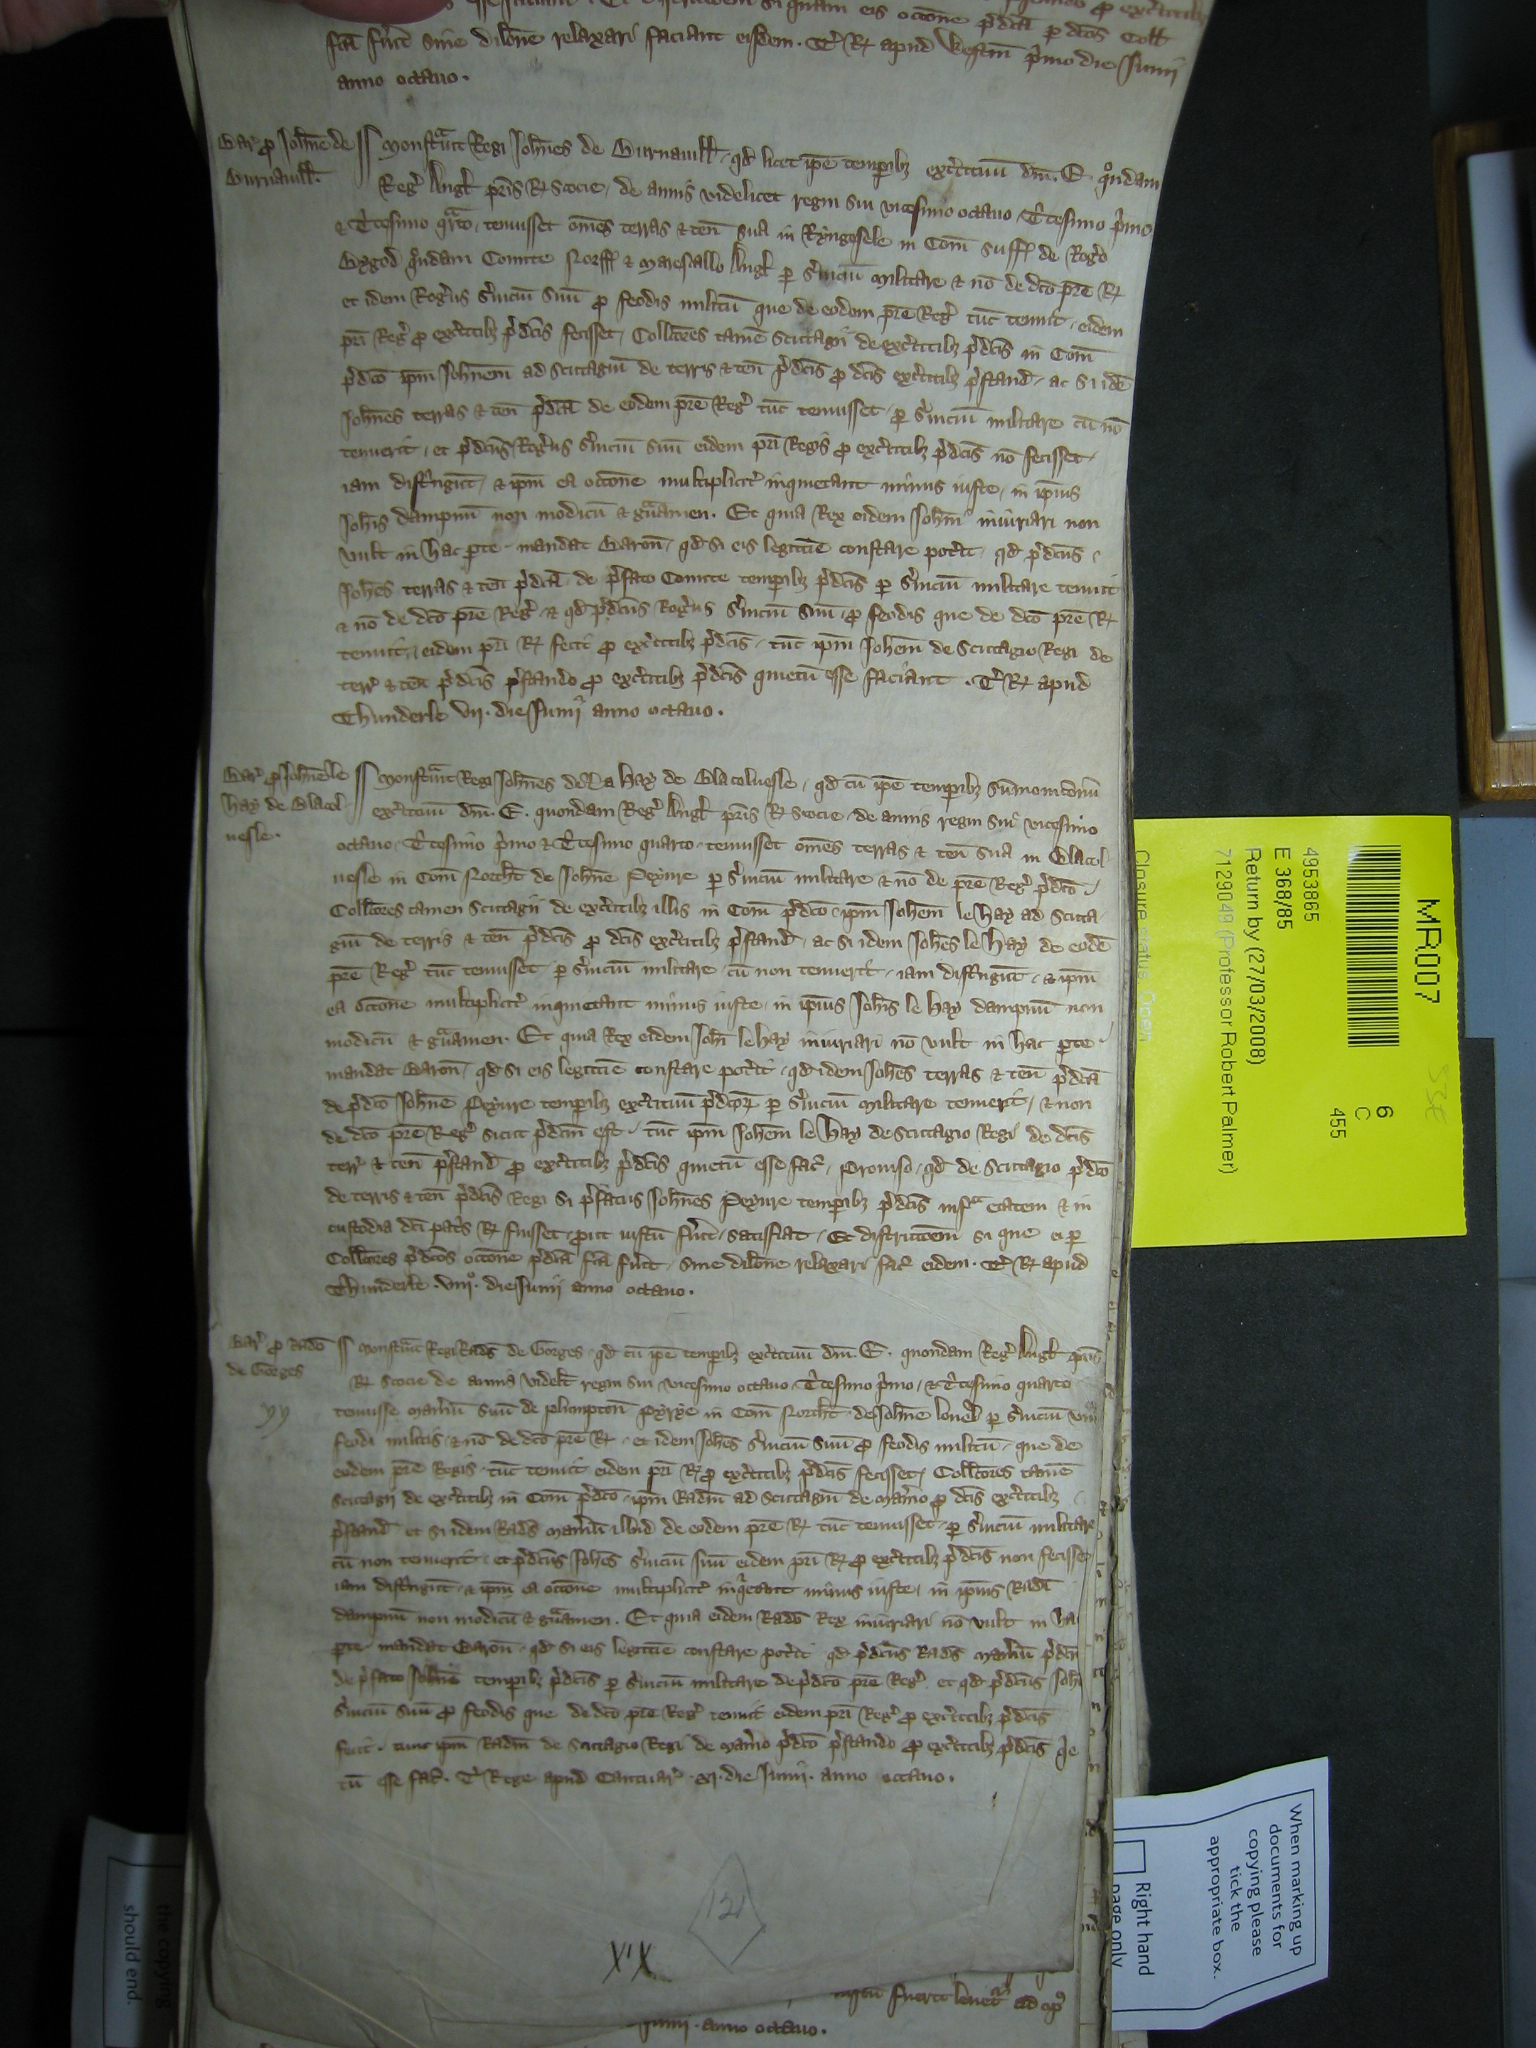 fcā fūrit sine dilōne relaxari faciant eisdem. T' R' apud Westm̄ p'mo die Junij
anno octauo.
Bar' p Joh̄ne de
Burnauill.
Monstrauit Regi Joh̄nes de Burnauill, qd licet ip̄e temporibȝ exc'ituū dn̄i E. quondam
Reg' Angl' pr̄is R' Scocie, de annis videlicet regni sui vicesimo octauo T'cesimo p'mo
& T'cesimo quarto, tenuisset om̄es terras & ten̄ sua in Ryngesele in Com̄ Suff' de Rog'o
Bygod quondam Comite Norff' & Marescallo Angl' p s'uiciū militare & nō de dc̄o pr̄e R'
et idem Rog'us s'uiciū suū p feodis militū que de eodem pr̄e Reg' tūc tenuit, eidem
pr̄i Reg' p exc'itibȝ p'dc̄is fecisset, Coll'ores tamē Scutagij de exc'itibȝ p'dc̄is in Com̄
p'dc̄o ip̄m Joh̄nem ad scutagiū de terris & ten̄ p'dc̄is p dc̄is exc'itibȝ p'stand', ac si idē
Joh̄nes terras & ten̄ p'dc̄a de eodem pr̄e Reg' tūc tenuisset, p s'uiciū militare cū nō
tenuerit, et p'dc̄us Rog'us s'uiciū suū eidem pr̄i Regis p exc'itibȝ p'dc̄is nō fecisset,
iam distringūt, & ip̄m ea occōne multiplicit' inquietant minus iuste, in ip̄ius
Joh̄is dampnū non modicū & grauamen. Et quia Rex eidem Joh̄ni iniuriari non
vult in hac p̄te, mandat Baron̄, qd si eis legitīe constare pot'it, qd p'dc̄us
Joh̄es terras & ten̄ p'dc̄a de p'fato Comite temporibȝ p'dc̄is p s'uiciū militare tenuit
& nō de dc̄o pr̄e Reg', & qd p'dc̄us Rog'us s'uiciū suū p feodis que de dc̄o pr̄e R'
tenuit, eidem pr̄i R' fecit p exc'itibȝ p'dc̄is, tūc ip̄m Joh̄em de Scutagio Regi de
terr' & ten̄ p'dc̄is p'stando p exc'itibȝ p'dc̄is quietū esse faciant. T' R' apud
Thunderle vij. die Junij anno octauo.
Bar' p Joh̄ne le
hay de Blacol
uesle.
Monstrauit Regi Joh̄nes de La hay de Blacoluesle, qd cū ip̄e temporibȝ sūmonicōnū
exc'ituū dn̄i E. quondam Reg' Angl' pr̄is R' Scocie de annis regni sui vicesimo
octauo, T'cesimo p'mo & T'cesimo quarto, tenuisset om̄es terras & ten̄ sua in Blacol
uesle in Com̄ Norht' de Joh̄ne Peyure p s'uiciū militare & nō de pr̄e Reg' p'dc̄o,
Coll'ores tamen Scutagij de exc'itibȝ illis in Com̄ p'dc̄o ip̄m Joh̄em le hay ad Scuta
giū de terris & ten̄ p'dc̄is p dc̄is exc'itibȝ p'stand', ac si idem Joh̄es le hay de eodē
pr̄e Reg' tūc tenuisset, p s'uiciū militare, cū non tenuerit, iam distringūt, & ip̄m
ea occōne multiplicit' inquietant minus iuste, in ip̄ius Joh̄is le hay dampnū non
modicū & grauamen. Et quia Rex eidem Joh̄i le hay iniuriari nō vult in hac p̄te
mandat Baron̄, qd si eis legitīe constare pot'it, qd idem Joh̄es terras & ten̄ p'dc̄a
de p'dc̄o Joh̄ne Peyure temporibȝ exc'ituū p'dc̄oꝝ p s'uiciū militare tenuerit, & non
de dc̄o pr̄e Reg' sicut p'dc̄m est, tūc ip̄m Joh̄em le hay de Scutagio Regi de dc̄is
terr' & ten̄ p'stand' p exc'itibȝ p'dc̄is quietū esse fac', prouiso, qd de Scutagio p'dc̄o
de terris & ten̄ p'dc̄is Regi si p'fatus Joh̄nes Peyure temporibȝ p'dc̄is infra etatem & in
custodia dc̄i patris R' fuisset, prout iustū fu'it, satisfiat, Et districcōem si que ei p
Coll'ores p'dc̄os occōne p'dc̄a fc̄a fu'it, sine dilōne relaxari fac' eidem. T' R' apud
Thunderle. viij. die Junij anno octauo.
Bar' p Radō
de Gorges
Monstrauit Regi Rad̄s de Gorges qd cū ip̄e temporibȝ exc'ituū dn̄i E. quondam Reg' Angl' pris
R' Scocie de annis videlt' regni sui vicesimo octauo T'cesimo p'mo, & T'cesimo quarto
tenuisse Man'iū suū de plumpton̄ Pyrye in Com̄ Norht' de Joh̄ne louel p s'uiciū vni'
feodi militis, & nō de dc̄o pr̄e R', et idem Joh̄es s'uiciū suū p feodis militū, que de
eodem pr̄e Regis tūc tenuit eidem pr̄i R' p exc'itibȝ p'dc̄is fecisset, Coll'ores tamē
Scutagij de exc'itibȝ in Com̄ p'dc̄o ip̄m Radm̄ ad Scutagiū de Man'io p dc̄is exc'itibȝ
p'stand' et si idem Rad̄s Man'iū illud de eodem pr̄e R' tūc tenuisset, p s'uiciū militare
cū non tenuerit, et p'dc̄us Joh̄es s'uiciū suū eidem pr̄i R' p exc'itibȝ p'dc̄is non fecisse
iam distringūt, & ip̄m ea occōne multiplicit' inquietant minus iuste, in ip̄ius Radi
dampnū non modicū & grauamen. Et quia eidem Radō Rex iniuriari nō vult in ha
p̄te, mandat Baron̄, qd si eis legitīe constare pot'it qd p'dc̄us Rad̄s Man'iū p'dc̄m
de p'fato Joh̄ne temporibȝ p'dc̄is p s'uiciū militare de p'dc̄o pr̄e Reg', et qd p'dc̄us Joh̄
s'uiciū suū p feodis que de dc̄o pr̄e Reg' tenuit eidem pr̄i Reg' p exc'itibȝ p'dc̄is
fecit, tunc ip̄m Radm̄ de Scutagio Regi de Man'io p'dc̄o p'stando p exc'itibȝ p'dc̄is q'e
tū esse fac'. T' Rege apud Cantuar' xj. die Junij. anno octauo.
121
XIX
fuerit leuet' ad op'
Junij. anno octauo.
MR007
6
C
455
4953865
E 368/85
Return by (27/03/2008)
7129049 (Professor Robert Palmer)
Closure status: Open
When marking up
documents for
copying please
tick the
appropriate box.
Right hand
page only
the copying
should end.